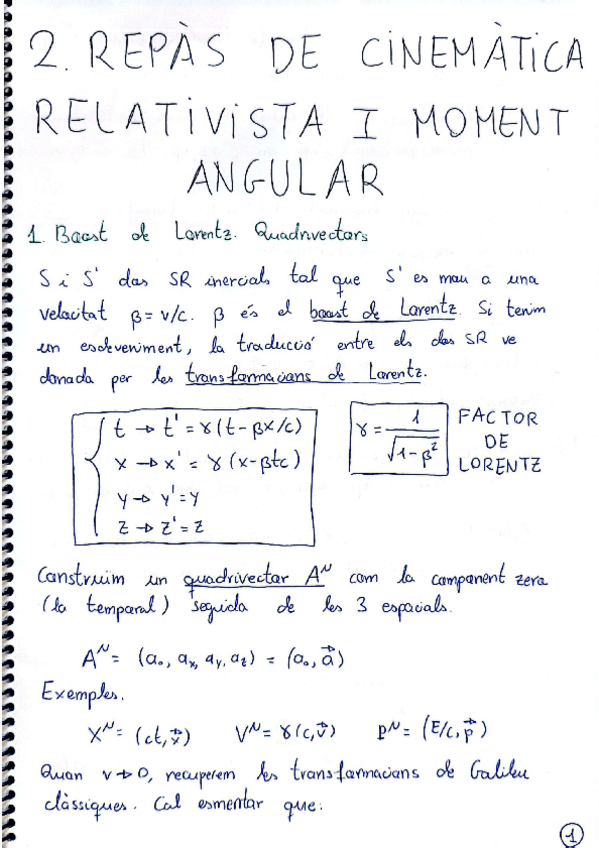 2. REPÀS DE CINEMÀTICA
RELATIVISTA I MOMENT
ANGULAR
1. Boost de Lorentz. Quadrivectors
S i S' dos SR inercials tal que S' es mou a una
velocitat β = v/c. β és el boost de Lorentz. Si tenim
un esdeveniment, la traducció entre els dos SR ve
donada per les transformacions de Lorentz.
t → t' = γ(t-βx/c)
x → x' = γ(x-βtc)
y → y' = y
z → z' = z
γ = 1/√(1-β²)
FACTOR
DE
LORENTZ
Construim un quadrivector Aᴹ com la component zero
(la temporal) seguida de les 3 espacials.
Aᴹ = (a₀, aₓ, aᵧ, a_z) = (a₀, a⃗)
Exemples.
Xᴹ = (ct, x⃗) Vᴹ = γ(c, v⃗) pᴹ = (E/c, p⃗)
Quan v→0, recuperem les transformacions de Galileu
clàssiques. Cal esmentar que:
1